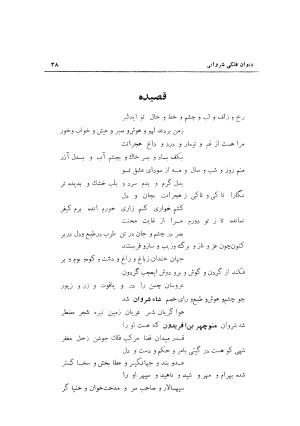 دیوان فلکی شروانی
۳۸
قصیده
رخ و زلف و لب و چشم و خط و خال تو ایدلبر
زمن بردند لهو و هوش و صبر و عیش و خواب و خور
مرا هست از غم و تیمار و درد و داغ هجرانت
بکف باد و بسر خاک و بچشم آب و بدل آذر
منم روز و شب و سال و مه از سودای عشق تو
بدل گرم و بدم سرد و بلب خشک و بدیده تر
نگارا تا کی و تاکی ز هجرانت بجان و دل
کشم خواری کنم زاری خورم انده برم کیفر
نمانده تا ز تو دورم مرا از غایت محنت
بصر در چشم و جان در تن طرب در طبع و دل در بر
کنون چون عز و ناز و برگ و زیب و ساز و فر بستند
جهان خندان ز باغ و راغ و دشت و کوه و بوم و بر
فکند از گردن و گوش و بر و دوش ایعجب گردون
عروسان چمن را در و یاقوت و زر و زیور
جو چشم و هوش و طبع و رای خصم شاه شروان شد
هوا گریان شمر عریان زمین تیره شجر مضطر
شه شروان منوچهر بن افریدون که هست او را
قدر میدان قضا مرکب فلک جوشن زحل مغفر
شهی کو هست در گیتی بامر و حکم و دست و دل
عدو بند و جهانگیر و عطا بخش و سخا گستر
شده بهرام و مهر و شید و ناهید و سپهر او را
سپهسالار و صاحب سر و مدحت‌خوان و خنیا گر